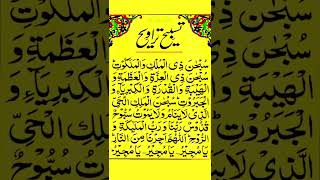 تسبیح تراویح
سُبْحٰنَ ذِی الْمُلْكِ وَالْمَلَكُوْتِ
سُبْحٰنَ ذِی الْعِزَّةِ وَالْعَظَمَةِ وَ
الْهَيْبَةِ وَالْقُدْرَةِ وَالْكِبْرِيَآءِ وَ
الْجَبَرُوْتِ سُبْحٰنَ الْمَلِكِ الْحَیِّ
الَّذِیْ لَا يَنَامُ وَلَا يَمُوْتُ سُبُّوْحٌ
قُدُّوْسٌ رَبُّنَا وَرَبُّ الْمَلٰٓئِكَةِ وَ
الرُّوْحِ اَللّٰهُمَّ اَجِرْنَا مِنَ النَّارِ
يَا مُجِيْرُ يَا مُجِيْرُ يَا مُجِيْرُ